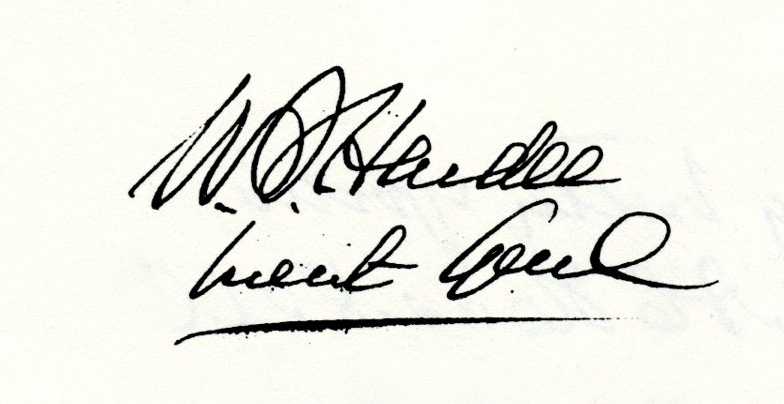 W. J. Hardee
Lieut Genl